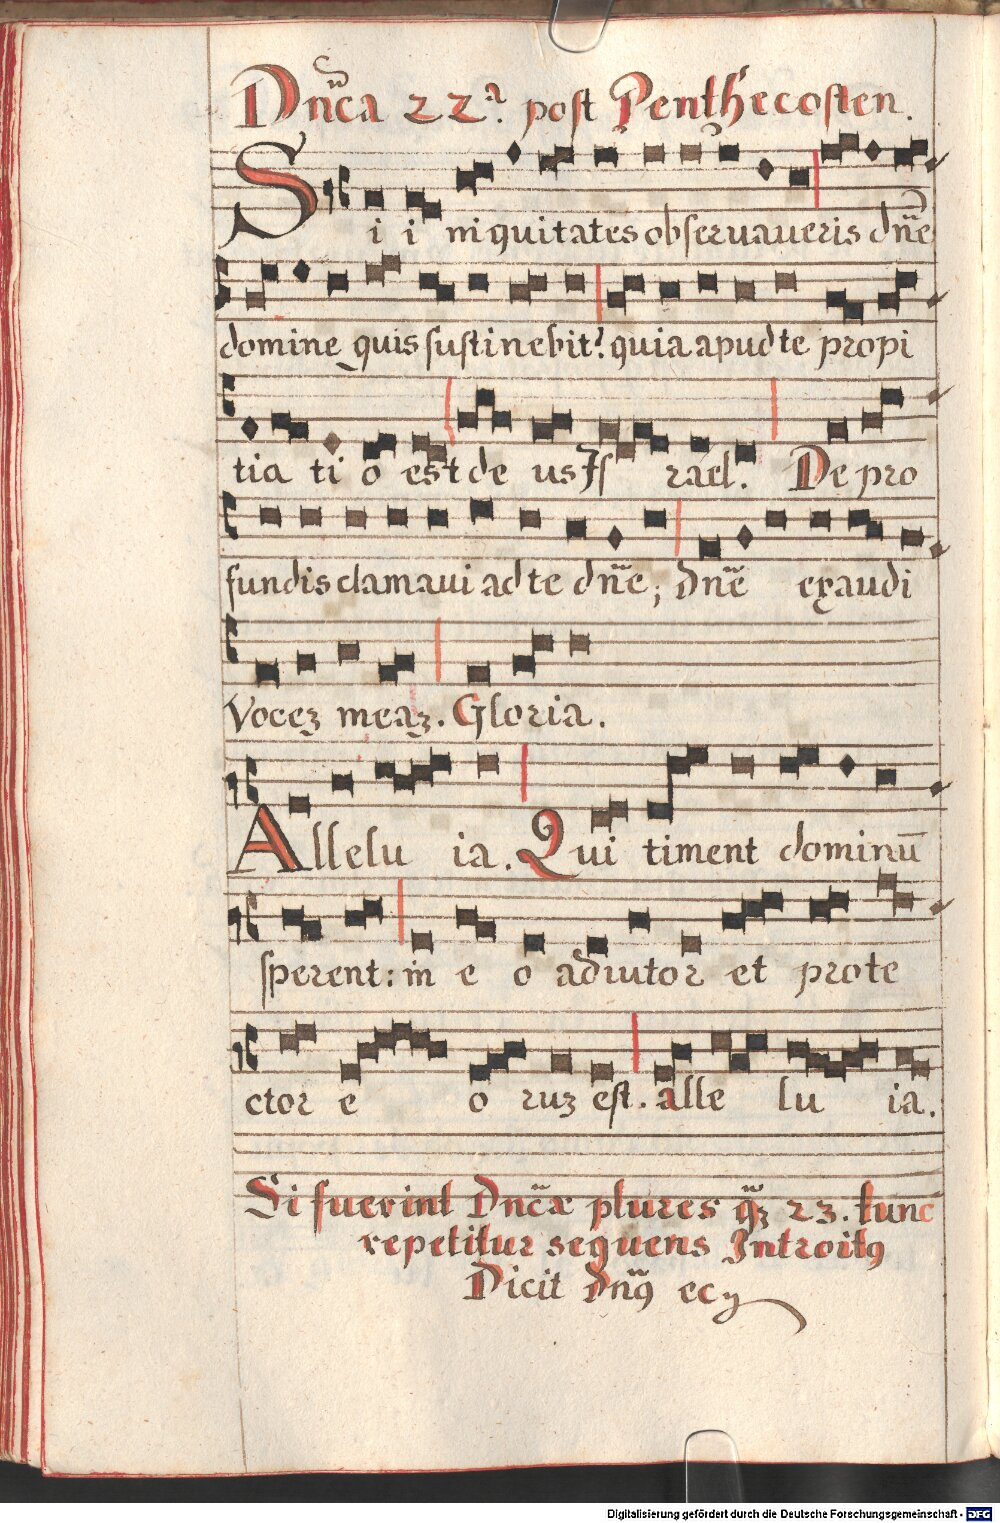 Dn̄ica 22ª. post Penthecosten.
Si iniquitates obseruaueris dn̄e
domine quis sustinebit? quia apud te propi
tiatio est deus Jsrael. De pro
fundis clamaui ad te dn̄e; dn̄e exaudi
Vocez meaz. Gloria.
Alleluia. Qui timent dominū
sperent: in eo adiutor et prote
ctor eoruz est. alleluia.
Si fuerint Dn̄cæ plures q̄z 23. tunc
repetitur sequens Introitꝯ
Dicit dn̄ꝯ ec
Digitalisierung gefördert durch die Deutsche Forschungsgemeinschaft - DFG